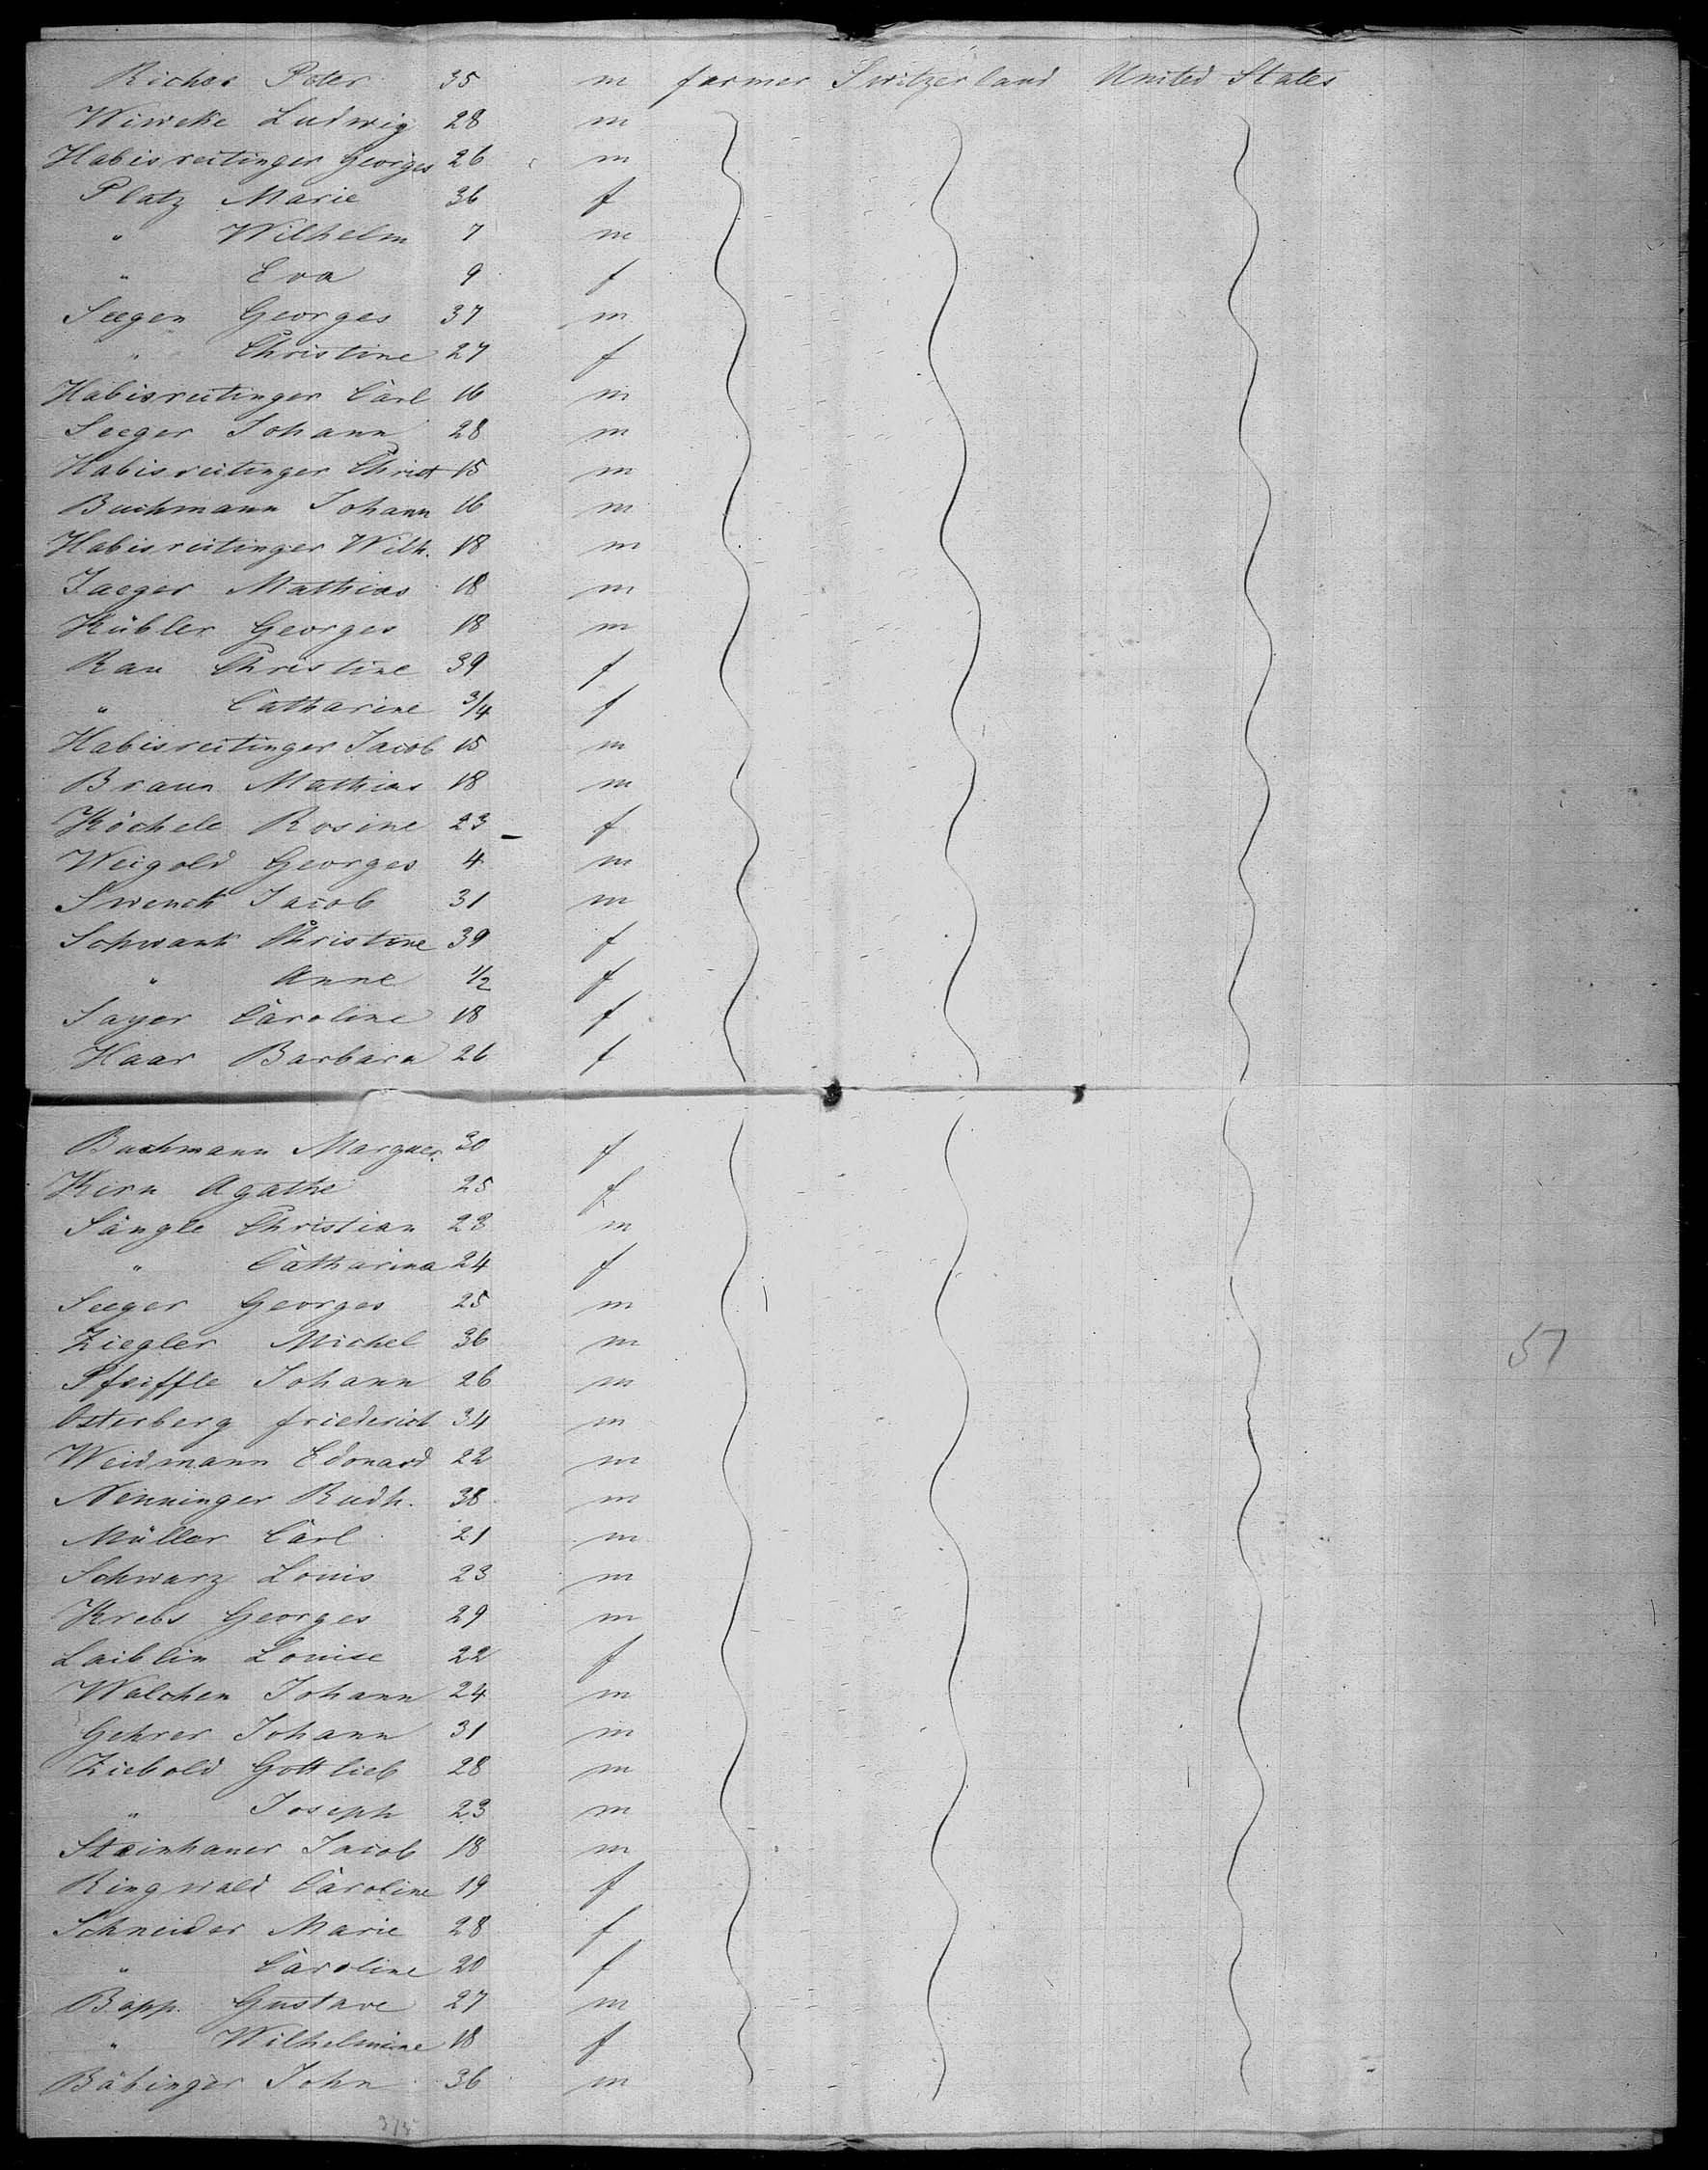 Richer Peter 35 m farmer Switzerland United States
Wiweke Ludwig 28 m
Habisreitinger Georges 26 m
Platz Marie 36 f
" Wilhelm 7 m
" Eva 9 f
Seegen Georges 37 m
" Christine 27 f
Habisreitinger Carl 16 m
Seeger Johann 28 m
Habisreitinger Christ 15 m
Buchmann Johann 16 m
Habisreitinger Wilh. 18 m
Jaeger Mathias 18 m
Kübler Georges 18 m
Rau Christine 39 f
" Catharine 3/4 f
Habisreitinger Jacob 15 m
Braun Mathias 18 m
Köchele Rosine 23 f
Weigold Georges 4 m
Swenck Jacob 31 m
Schwank Christine 39 f
" Anne 1/2 f
Sayer Caroline 18 f
Haar Barbara 26 f
Buchmann Marguer. 30 f
Kirn Agathe 25 f
Sängle Christian 23 m
" Catharina 24 f
Seeger Georges 25 m
Ziegler Michel 36 m
Pfeiffle Johann 26 m
57
Osterberg friederich 34 m
Weidmann Edouard 22 m
Nenninger Rudh. 38 m
Müller Carl 21 m
Schwarz Louis 23 m
Krebs Georges 29 m
Laiblin Louise 22 f
Walchen Johann 24 m
Gehrer Johann 31 m
Ziebold Gottlieb 28 m
" Joseph 23 m
Steinhauer Jacob 18 m
Ringwald Caroline 19 f
Schneider Marie 28 f
" Caroline 20 f
Bapp. Gustave 27 m
" Wilhelmine 18 f
Bäbinger John 36 m